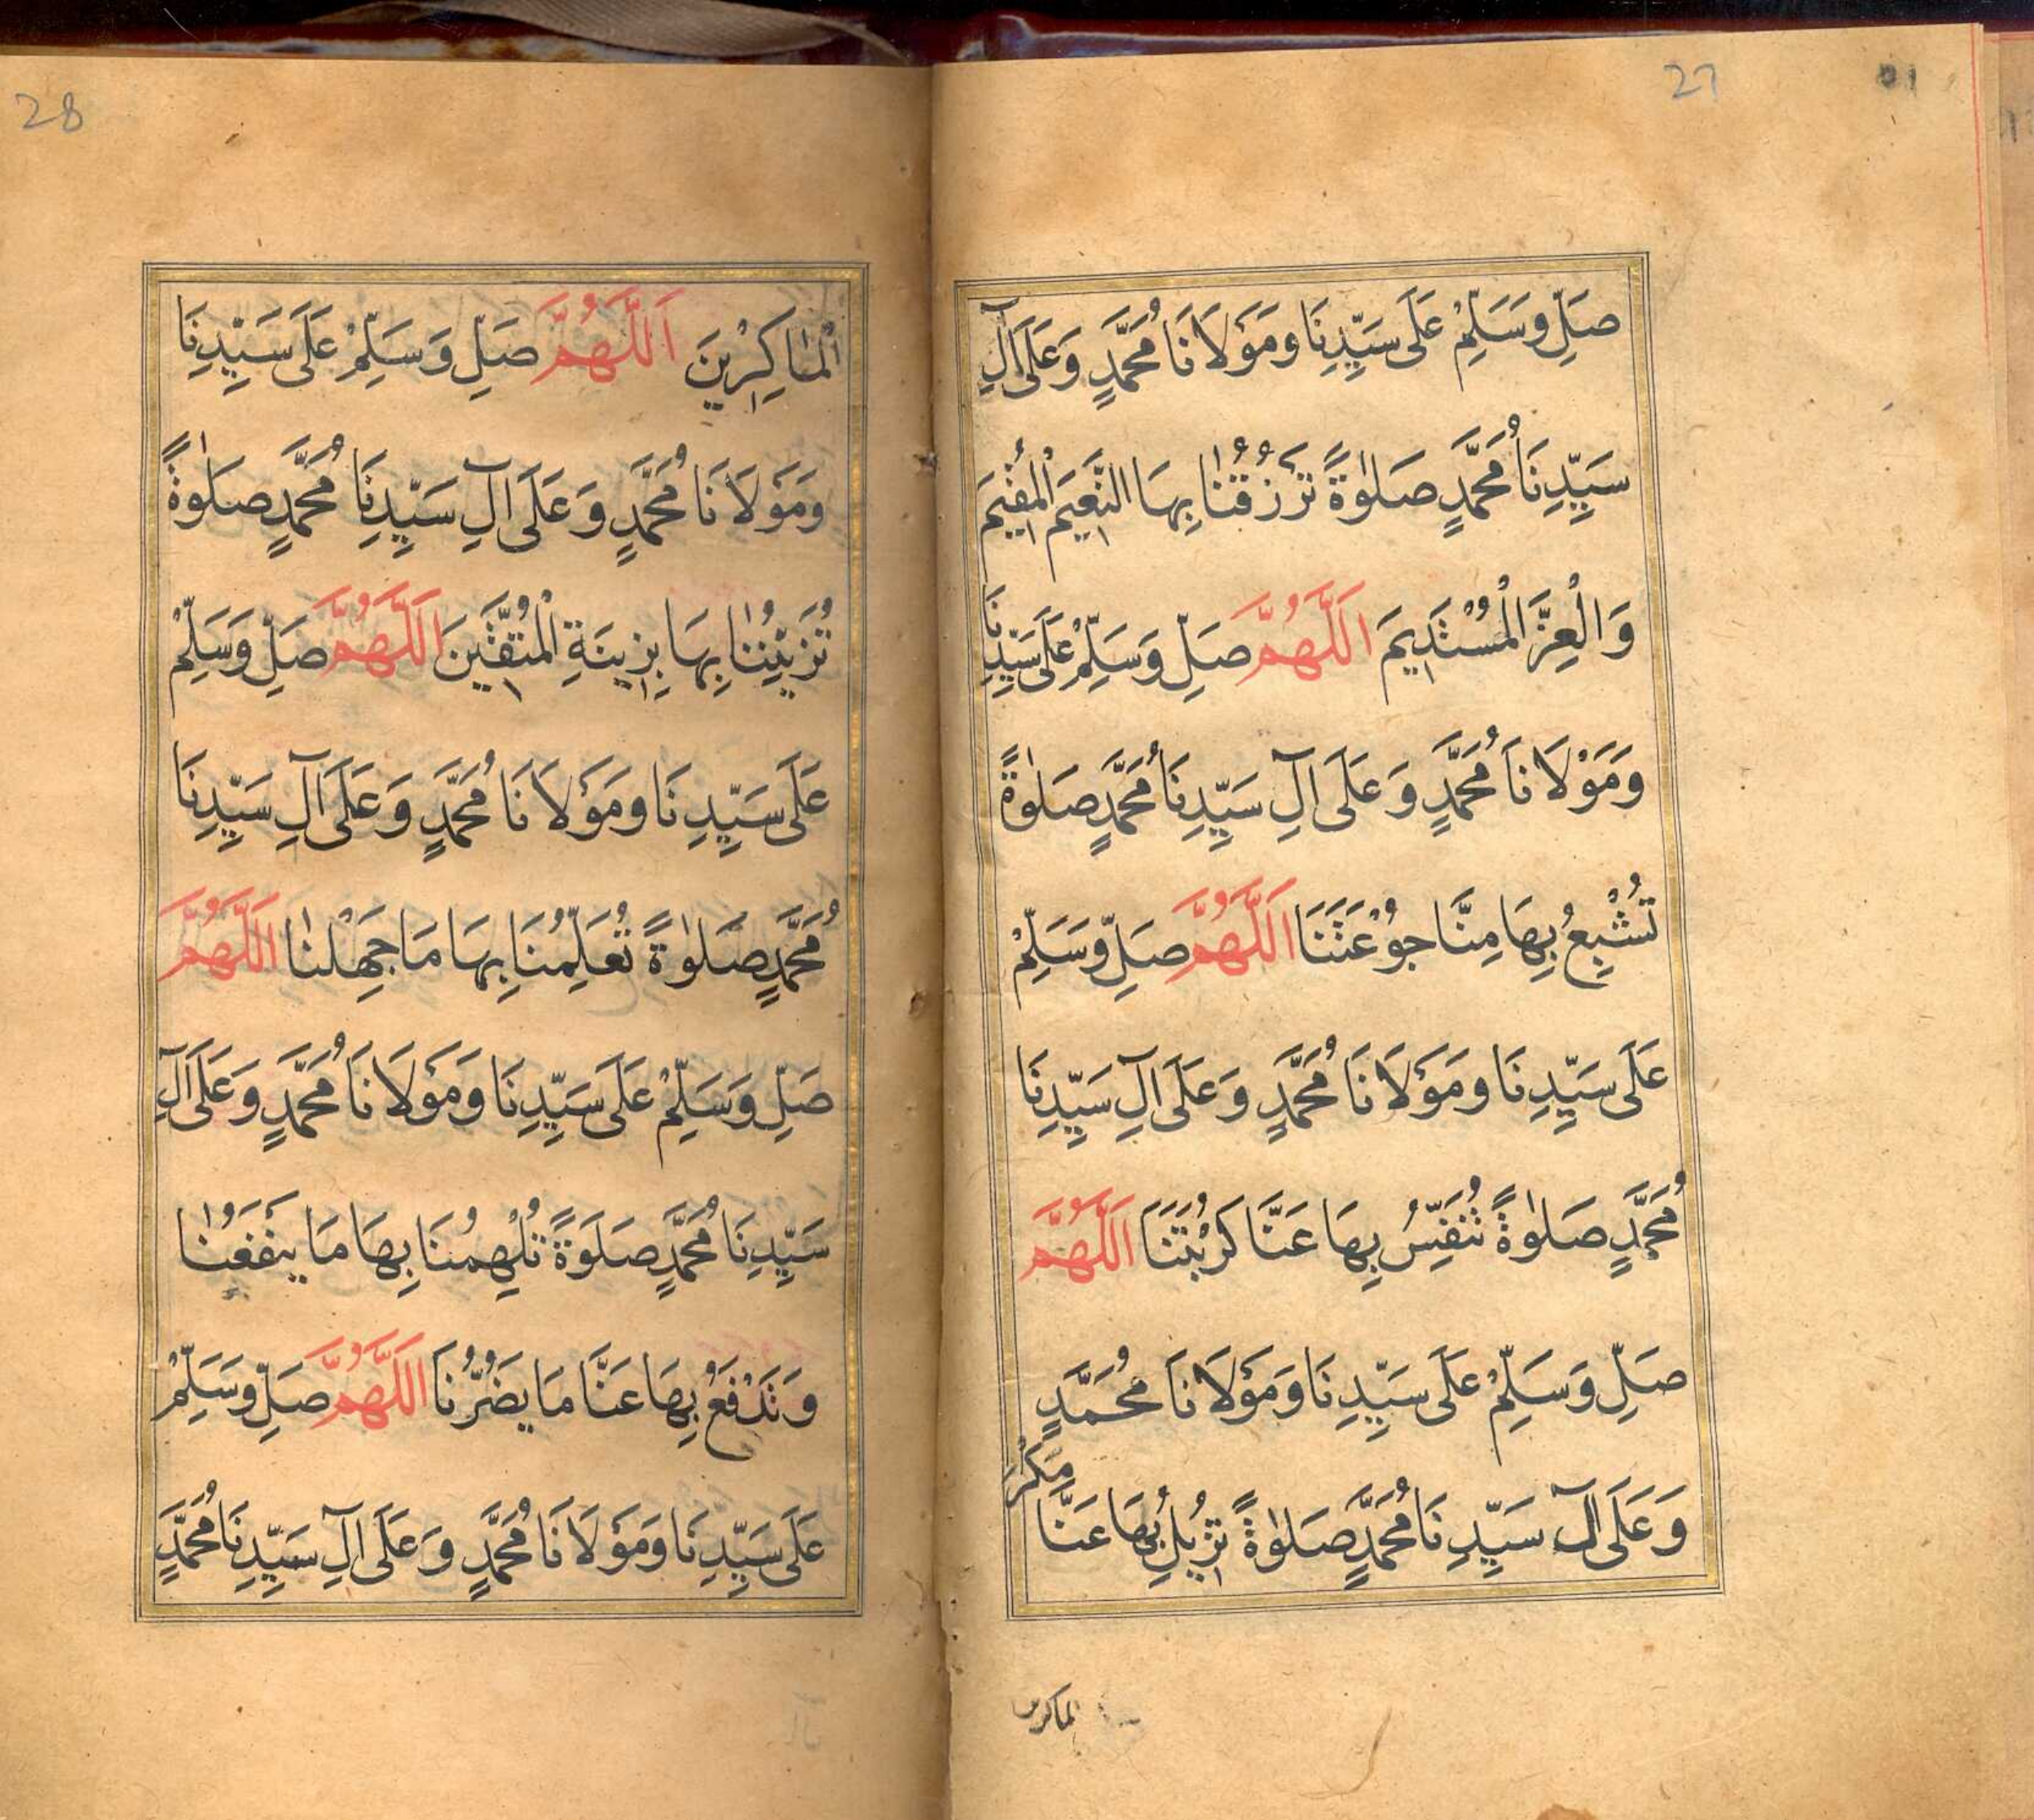 27
صَلِّ وَسَلِّمْ عَلَى سَيِّدِنَا وَمَوْلَانَا مُحَمَّدٍ وَعَلَى آلِ
سَيِّدِنَا مُحَمَّدٍ صَلٰوةً تَرْزُقُنَا بِهَا النَّعِيمَ الْمُقِيمَ
وَالْعِزَّ الْمُسْتَدِيمَ اَللَّهُمَّ صَلِّ وَسَلِّمْ عَلَى سَيِّدِنَا
وَمَوْلَانَا مُحَمَّدٍ وَعَلَى آلِ سَيِّدِنَا مُحَمَّدٍ صَلٰوةً
تُشْبِعُ بِهَا مِنَّا جُوْعَتَنَا اَللَّهُمَّ صَلِّ وَسَلِّمْ
عَلَى سَيِّدِنَا وَمَوْلَانَا مُحَمَّدٍ وَعَلَى آلِ سَيِّدِنَا
مُحَمَّدٍ صَلٰوةً تُنَفِّسُ بِهَا عَنَّا كُرْبَتَنَا اَللَّهُمَّ
صَلِّ وَسَلِّمْ عَلَى سَيِّدِنَا وَمَوْلَانَا مُحَمَّدٍ
وَعَلَى آلِ سَيِّدِنَا مُحَمَّدٍ صَلٰوةً تُزِيلُ بِهَا عَنَّا مَكْرَ
الماكرين
28
الْمَاكِرِينَ اَللَّهُمَّ صَلِّ وَسَلِّمْ عَلَى سَيِّدِنَا
وَمَوْلَانَا مُحَمَّدٍ وَعَلَى آلِ سَيِّدِنَا مُحَمَّدٍ صَلٰوةً
تُزَيِّنُنَا بِهَا بِزِينَةِ الْمُتَّقِينَ اَللَّهُمَّ صَلِّ وَسَلِّمْ
عَلَى سَيِّدِنَا وَمَوْلَانَا مُحَمَّدٍ وَعَلَى آلِ سَيِّدِنَا
مُحَمَّدٍ صَلٰوةً تُعَلِّمُنَا بِهَا مَا جَهِلْنَا اَللَّهُمَّ
صَلِّ وَسَلِّمْ عَلَى سَيِّدِنَا وَمَوْلَانَا مُحَمَّدٍ وَعَلَى آلِ
سَيِّدِنَا مُحَمَّدٍ صَلَوةً تُلْهِمُنَا بِهَا مَا يَنْفَعُنَا
وَتَدْفَعُ بِهَا عَنَّا مَا يَضُرُّنَا اَللَّهُمَّ صَلِّ وَسَلِّمْ
عَلَى سَيِّدِنَا وَمَوْلَانَا مُحَمَّدٍ وَعَلَى آلِ سَيِّدِنَا مُحَمَّدٍ